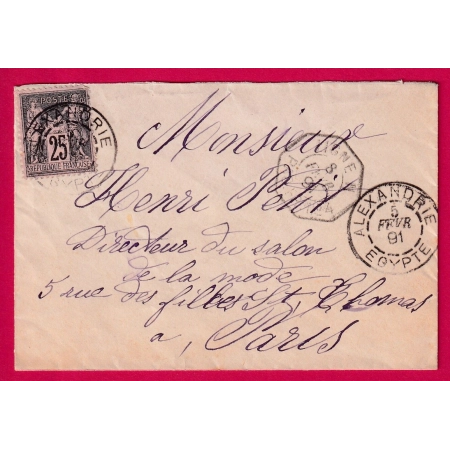 POSTE
25
REPUBLIQUE FRANÇAISE
ALEXANDRIE
5
FEVR
91
EGYPTE
8
Monsieur
Henri Petit
Directeur du salon
de la mode
5 rue des filles St. Thomas
à, Paris